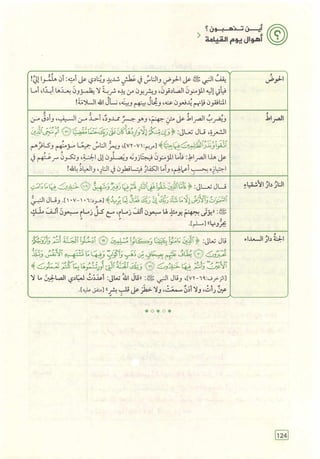 أيــن تــذهبــون ؟
أهوال يوم القيامة
الحوضُ
يقفُ النبي ﷺ على الحوضِ والناسُ في عَطَشٍ شديدٍ ويُنادي على أمتِه: أن هلُمُّوا إليَّ!
فيأتي إليه المؤمنونَ الصادقون، ويشربون من يدِه شربةً لا يظمؤونَ بعدَها أبدًا، أما
المنافقون فإنهم يُدفعون عنه، ويُحالُ بينهم وبينَه، نسألُ الله السلامةَ!
الصراطُ
ويُضربُ الصراطُ على متنِ جهنّمَ، وهو جسرٌ ممدودٌ، أحدُّ من السيفِ، وأدقُّ من
الشعرةِ، قال تعالى: ﴿وَإِن مِّنكُمْ إِلَّا وَارِدُهَا كَانَ عَلَىٰ رَبِّكَ حَتْمًا مَّقْضِيًّا ۝ ثُمَّ نُنَجِّي الَّذِينَ
اتَّقَوا وَّنَذَرُ الظَّالِمِينَ فِيهَا جِثِيًّا﴾ [مريم:٧١-٧٢]، ويمرُّ الناسُ جميعًا مؤمنُهم وكافرُهم
على هذا الصراطِ: فأما المؤمنونَ فيجتازونَه ويَصِلُون إلى الجنةِ، وتكونُ سرعتُهم في
اجتيازِه بحسبِ أعمالِهم، وأما الكفارُ فيتساقطون في النارِ، والعياذُ بالله!
النارُ دارُ الأشقياءِ
قال تعالى: ﴿فَأَمَّا الَّذِينَ شَقُوا فَفِي النَّارِ لَهُمْ فِيهَا زَفِيرٌ وَشَهِيقٌ ۝ خَالِدِينَ فِيهَا مَا دَامَتِ
السَّمَاوَاتُ وَالْأَرْضُ إِلَّا مَا شَاءَ رَبُّكَ إِنَّ رَبَّكَ فَعَّالٌ لِّمَا يُرِيدُ﴾ [هود:١٠٦-١٠٧]. وقال النبيُّ
ﷺ: «يؤتَى بجهنمَ يومئذٍ لها سبعونَ ألفَ زمامٍ، مع كلِّ زمامٍ سبعونَ ألفَ ملَكٍ
يجرُّونها» [مسلم].
الجنةُ دارُ السعداءِ
قال تعالى: ﴿الَّذِينَ آمَنُوا بِآيَاتِنَا وَكَانُوا مُسْلِمِينَ ۝ ادْخُلُوا الْجَنَّةَ أَنتُمْ وَأَزْوَاجُكُمْ
تُحْبَرُونَ ۝ يُطَافُ عَلَيْهِم بِصِحَافٍ مِّن ذَهَبٍ وَأَكْوَابٍ وَفِيهَا مَا تَشْتَهِيهِ الْأَنفُسُ وَتَلَذُّ
الْأَعْيُنُ وَأَنتُمْ فِيهَا خَالِدُونَ ۝ وَتِلْكَ الْجَنَّةُ الَّتِي أُورِثْتُمُوهَا بِمَا كُنتُمْ تَعْمَلُونَ﴾
[الزخرف:٦٩-٧٢]، وقال النبي ﷺ: «قالَ اللهُ تعالى: أعدَدْتُ لعِبادي الصالحينَ ما لا
عينٌ رأتْ، ولا أذنٌ سمعَتْ، ولا خطَرَ على قلبِ بشرٍ» [متفق عليه].
124